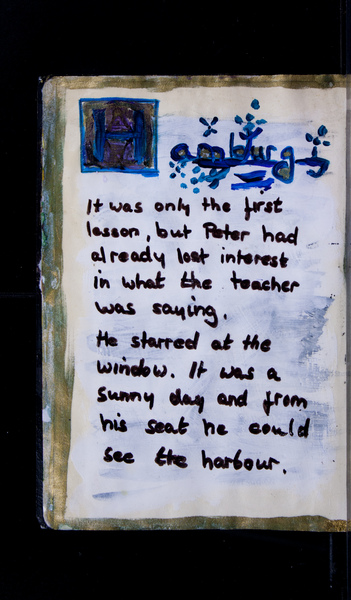 Hamburg
It was only the first
lesson, but Peter had
already lost interest
in what the teacher
was saying.
He starred at the
window. It was a
sunny day and from
his seat he could
see the harbour.